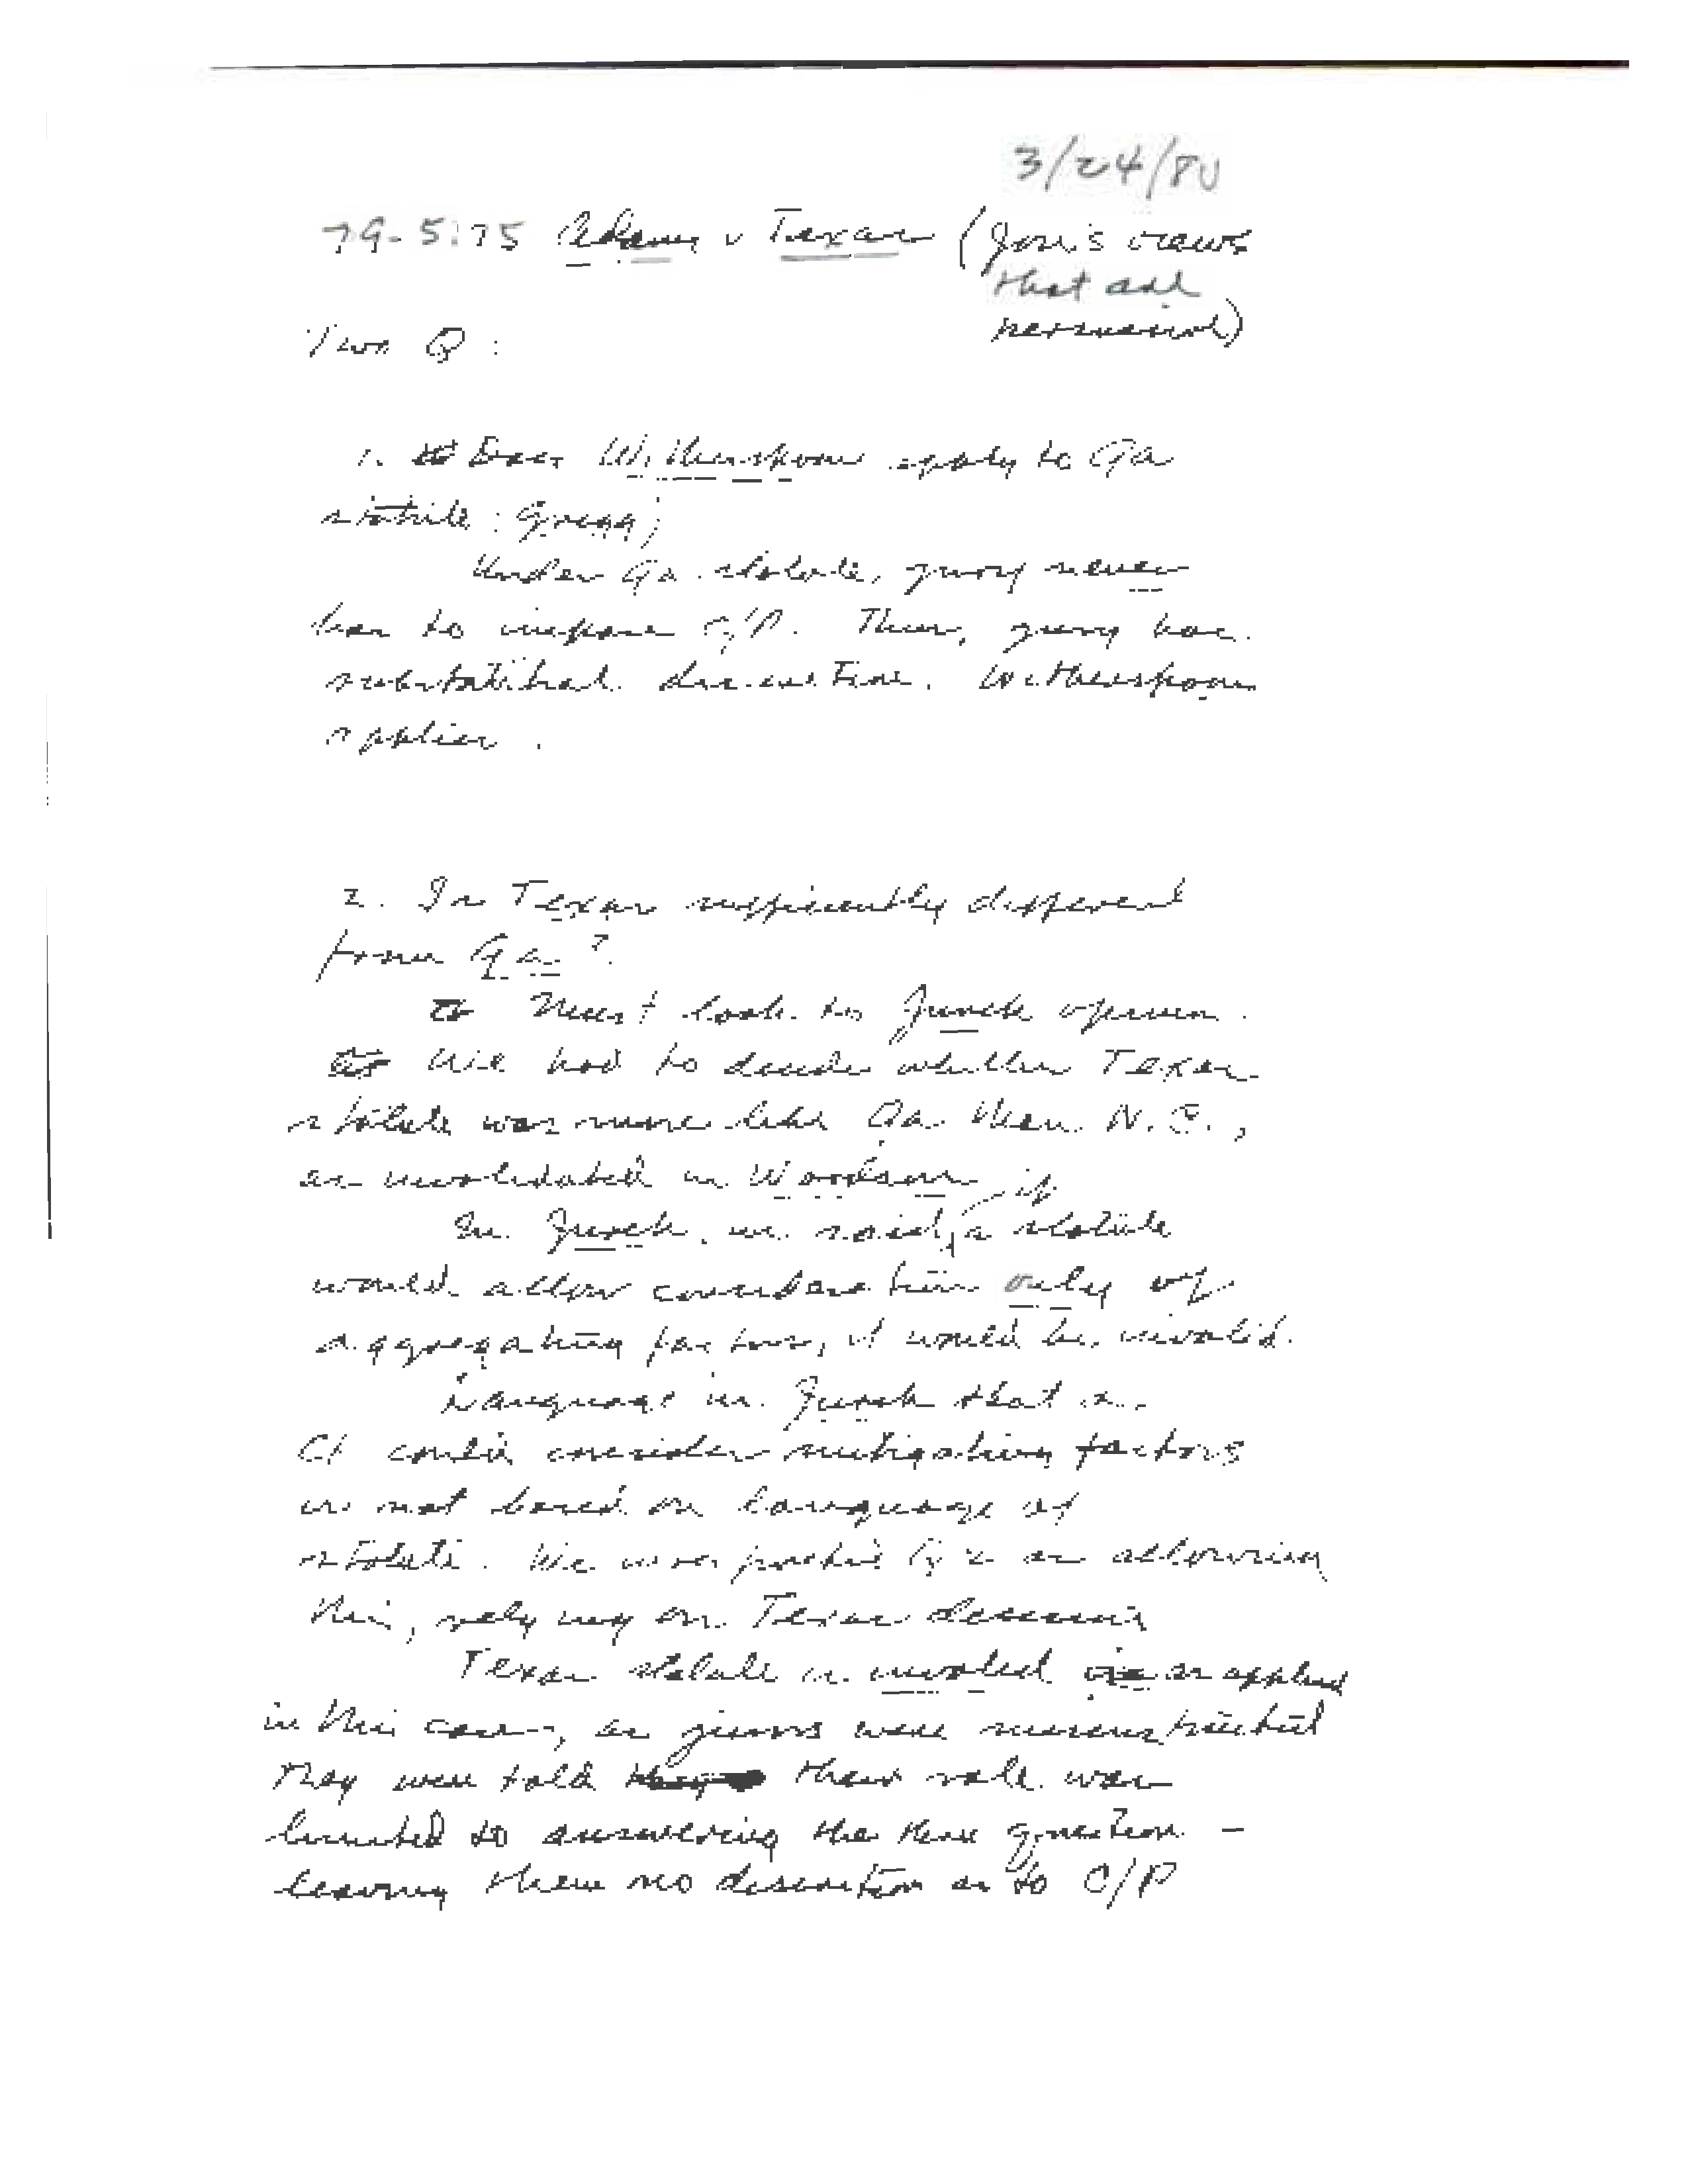 3/24/80
79-5175 Adams v Texas (Jon's views
that are
persuasive)
Two Q:
1. Does Witherspoon apply to Ga
statute: Gregg;
Under Ga. statute, jury never
has to impose C/P. Thus, jury has
substantial discretion. Witherspoon
applies.
2. Is Texas sufficiently different
from Ga?
Must look to Jurek opinion.
We had to decide whether Texas
statute was more like Ga than N.C.,
as invalidated in Woodson
In Jurek, we said, if a statute
would allow consideration only of
aggregating factors, it would be invalid.
Language in Jurek that a
Ct could consider mitigating factors
is not based on language of
statute. We as allowing
this, relying on Texas decision
Texas statute is invalid as applied
in this case, as jurors were misinstructed
They were told their role was
limited to answering the three question -
leaving them no discretion as to C/P